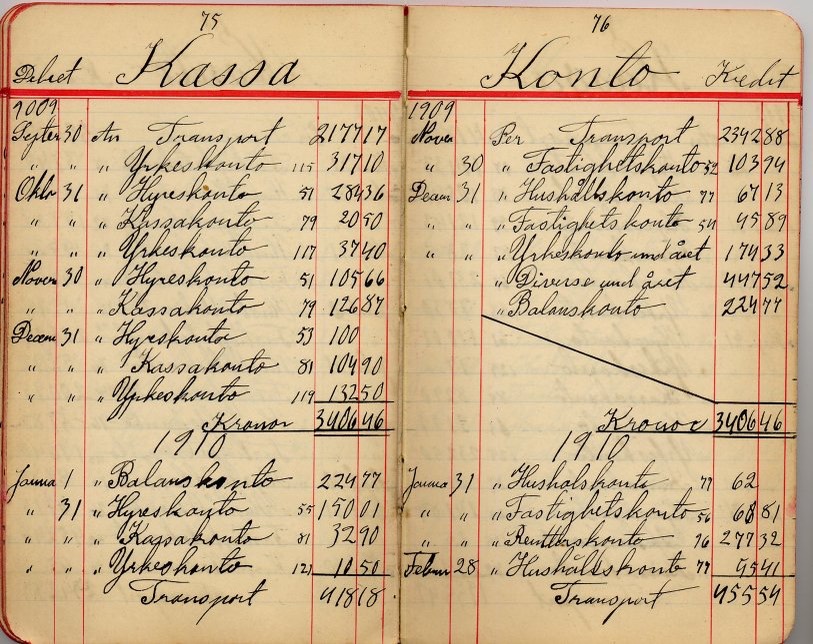 75
Debet Kassa
1909
Septer 30 An Transport 2177 17
" " " Yrkeskonto 115 317 10
Oktbr 31 " Hyreskonto 51 284 36
" " " Kassakonto 79 20 50
" " " Yrkeskonto 117 37 40
Novem 30 " Hyreskonto 51 105 66
" " " Kassakonto 79 126 87
Decem 31 " Hyreskonto 53 100
" " " Kassakonto 81 104 90
" " " Yrkeskonto 119 132 50
Kronor 3406 46
1910
Janua 1 " Balanskonto 224 77
" 31 " Hyreskonto 55 150 01
" " " Kassakonto 81 32 90
" " " Yrkeskonto 121 10 50
Transport 418 18
76
Konto Kredit
1909
Novem Per Transport 2342 88
" 30 " Fastighetskonto 52 103 94
Decem 31 " Hushållskonto 77 67 13
" " " Fastighetskonto 54 45 89
" " " Yrkeskonto und året 174 33
" Diverse und året 447 52
" Balanskonto 224 77
Kronor 3406 46
1910
Janua 31 " Husholskonto 77 62
" " " Fastighetskonto 56 68 81
" " " 76 277 32
Febru 28 " Hushållskonto 77 45 41
Transport 455 54